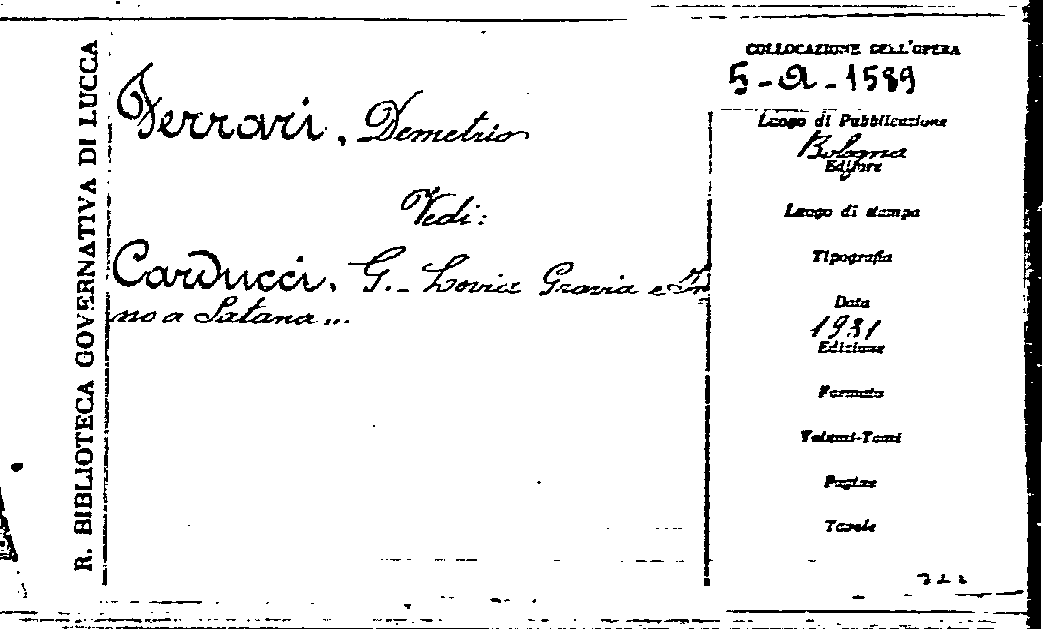 R. BIBLIOTECA GOVERNATIVA DI LUCCA
Ferrari, Demetrio
Vedi:
Carducci, G. - Levia Gravia e In
no a Satana...
COLLOCAZIONE DELL'OPERA
5-a-1589
Luogo di Pubblicazione
Bologna
Editore
Luogo di stampa
Tipografia
Data
1931
Edizione
Formato
Volumi-Tomi
Pagine
Tavole